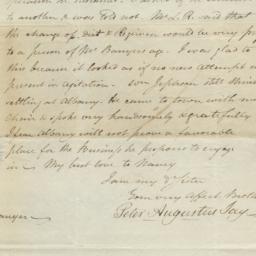 to another & was told not. Mr. L. R. said that
the change of diet & Regimen would be very
to a person of Mr Banyers age. I was glad to
this because it looked as if no new attempt
present in agitation. Jepson still
settling at Albany. He came to town with
& spoke very handsomely & gratefully
I fear Albany will not prove a favorable
place for the Business he proposes to engage
in — My best love to Nancy
I am my Dr Sister
Your very affect Brother
Peter Augustus Jay
Banyer —